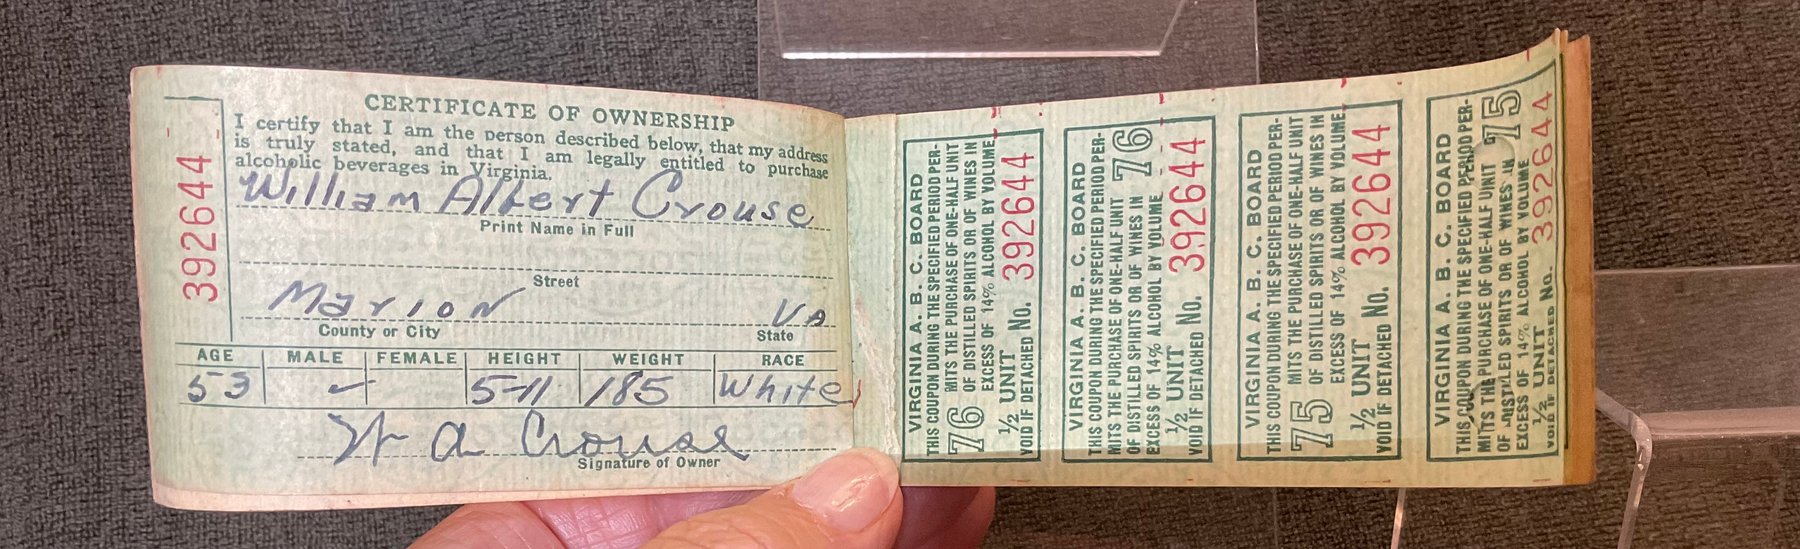 392644
CERTIFICATE OF OWNERSHIP
I certify that I am the person described below, that my address
is truly stated, and that I am legally entitled to purchase
alcoholic beverages in Virginia.
William Albert Crouse
Print Name in Full
Street
Marion Va
County or City State
AGE MALE FEMALE HEIGHT WEIGHT RACE
53 ✓ 5-11 185 White
W A Crouse
Signature of Owner
VIRGINIA A. B. C. BOARD
THIS COUPON DURING THE SPECIFIED PERIOD PER-
MITS THE PURCHASE OF ONE-HALF UNIT
76 OF DISTILLED SPIRITS OR OF WINES IN
EXCESS OF 14% ALCOHOL BY VOLUME
1/2 UNIT
VOID IF DETACHED No. 392644
VIRGINIA A. B. C. BOARD
THIS COUPON DURING THE SPECIFIED PERIOD PER-
MITS THE PURCHASE OF ONE-HALF UNIT
OF DISTILLED SPIRITS OR OF WINES IN 76
EXCESS OF 14% ALCOHOL BY VOLUME
1/2 UNIT
VOID IF DETACHED No. 392644
VIRGINIA A. B. C. BOARD
THIS COUPON DURING THE SPECIFIED PERIOD PER-
MITS THE PURCHASE OF ONE-HALF UNIT
75 OF DISTILLED SPIRITS OR OF WINES IN
EXCESS OF 14% ALCOHOL BY VOLUME
1/2 UNIT
VOID IF DETACHED No. 392644
VIRGINIA A. B. C. BOARD
THIS COUPON DURING THE SPECIFIED PERIOD PER-
MITS THE PURCHASE OF ONE-HALF UNIT
OF DISTILLED SPIRITS OR OF WINES IN 75
EXCESS OF 14% ALCOHOL BY VOLUME
1/2 UNIT
VOID IF DETACHED No. 392644